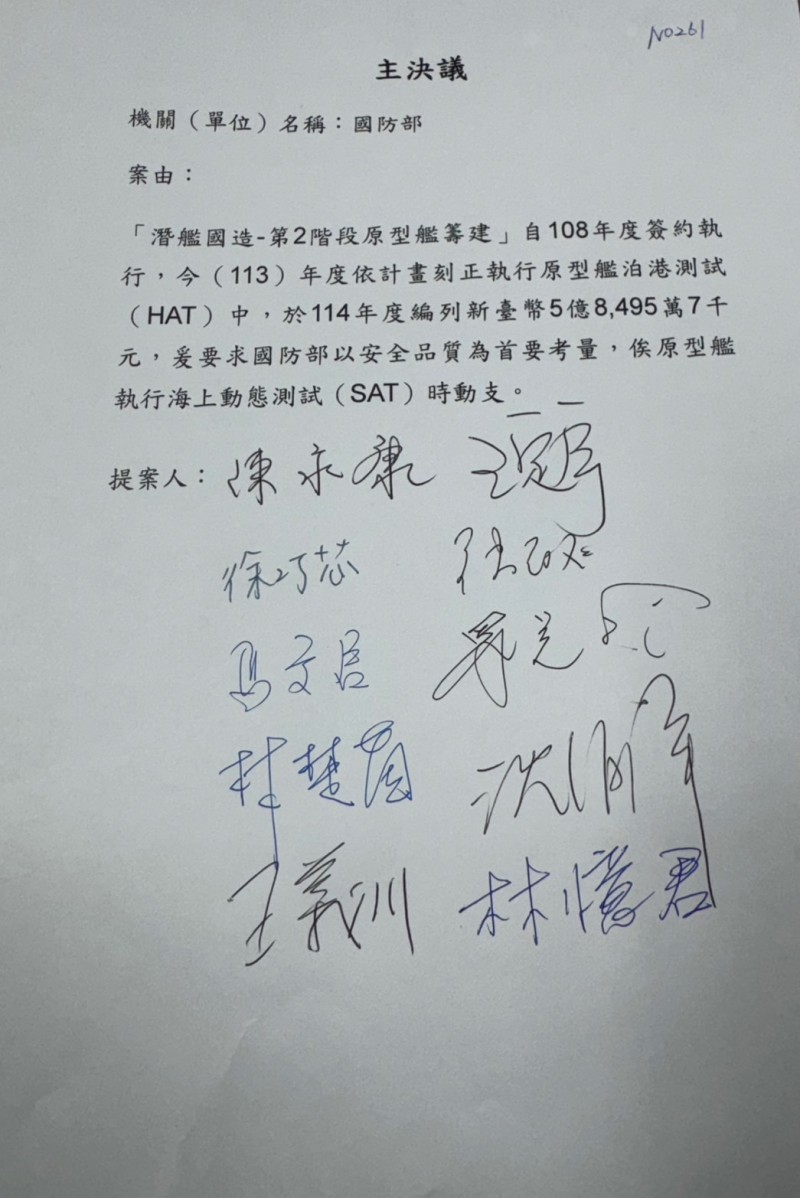 NO261
主決議
機關（單位）名稱：國防部
案由：
「潛艦國造-第2階段原型艦籌建」自108年度簽約執
行，今（113）年度依計畫刻正執行原型艦泊港測試
（HAT）中，於114年度編列新臺幣5億8,495萬7千
元，爰要求國防部以安全品質為首要考量，俟原型艦
執行海上動態測試（SAT）時動支。
提案人：陳永康 王定宇
徐巧芯
馬文君
林楚茵 沈伯洋
王義川 林憶君